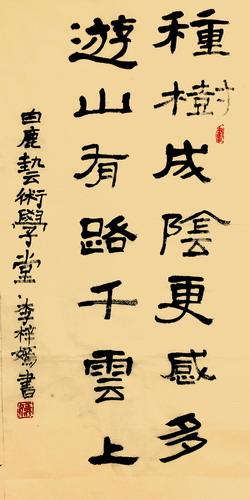 種樹成陰更感多
遊山有路千雲上
白鹿藝術學堂 李梓嫣書